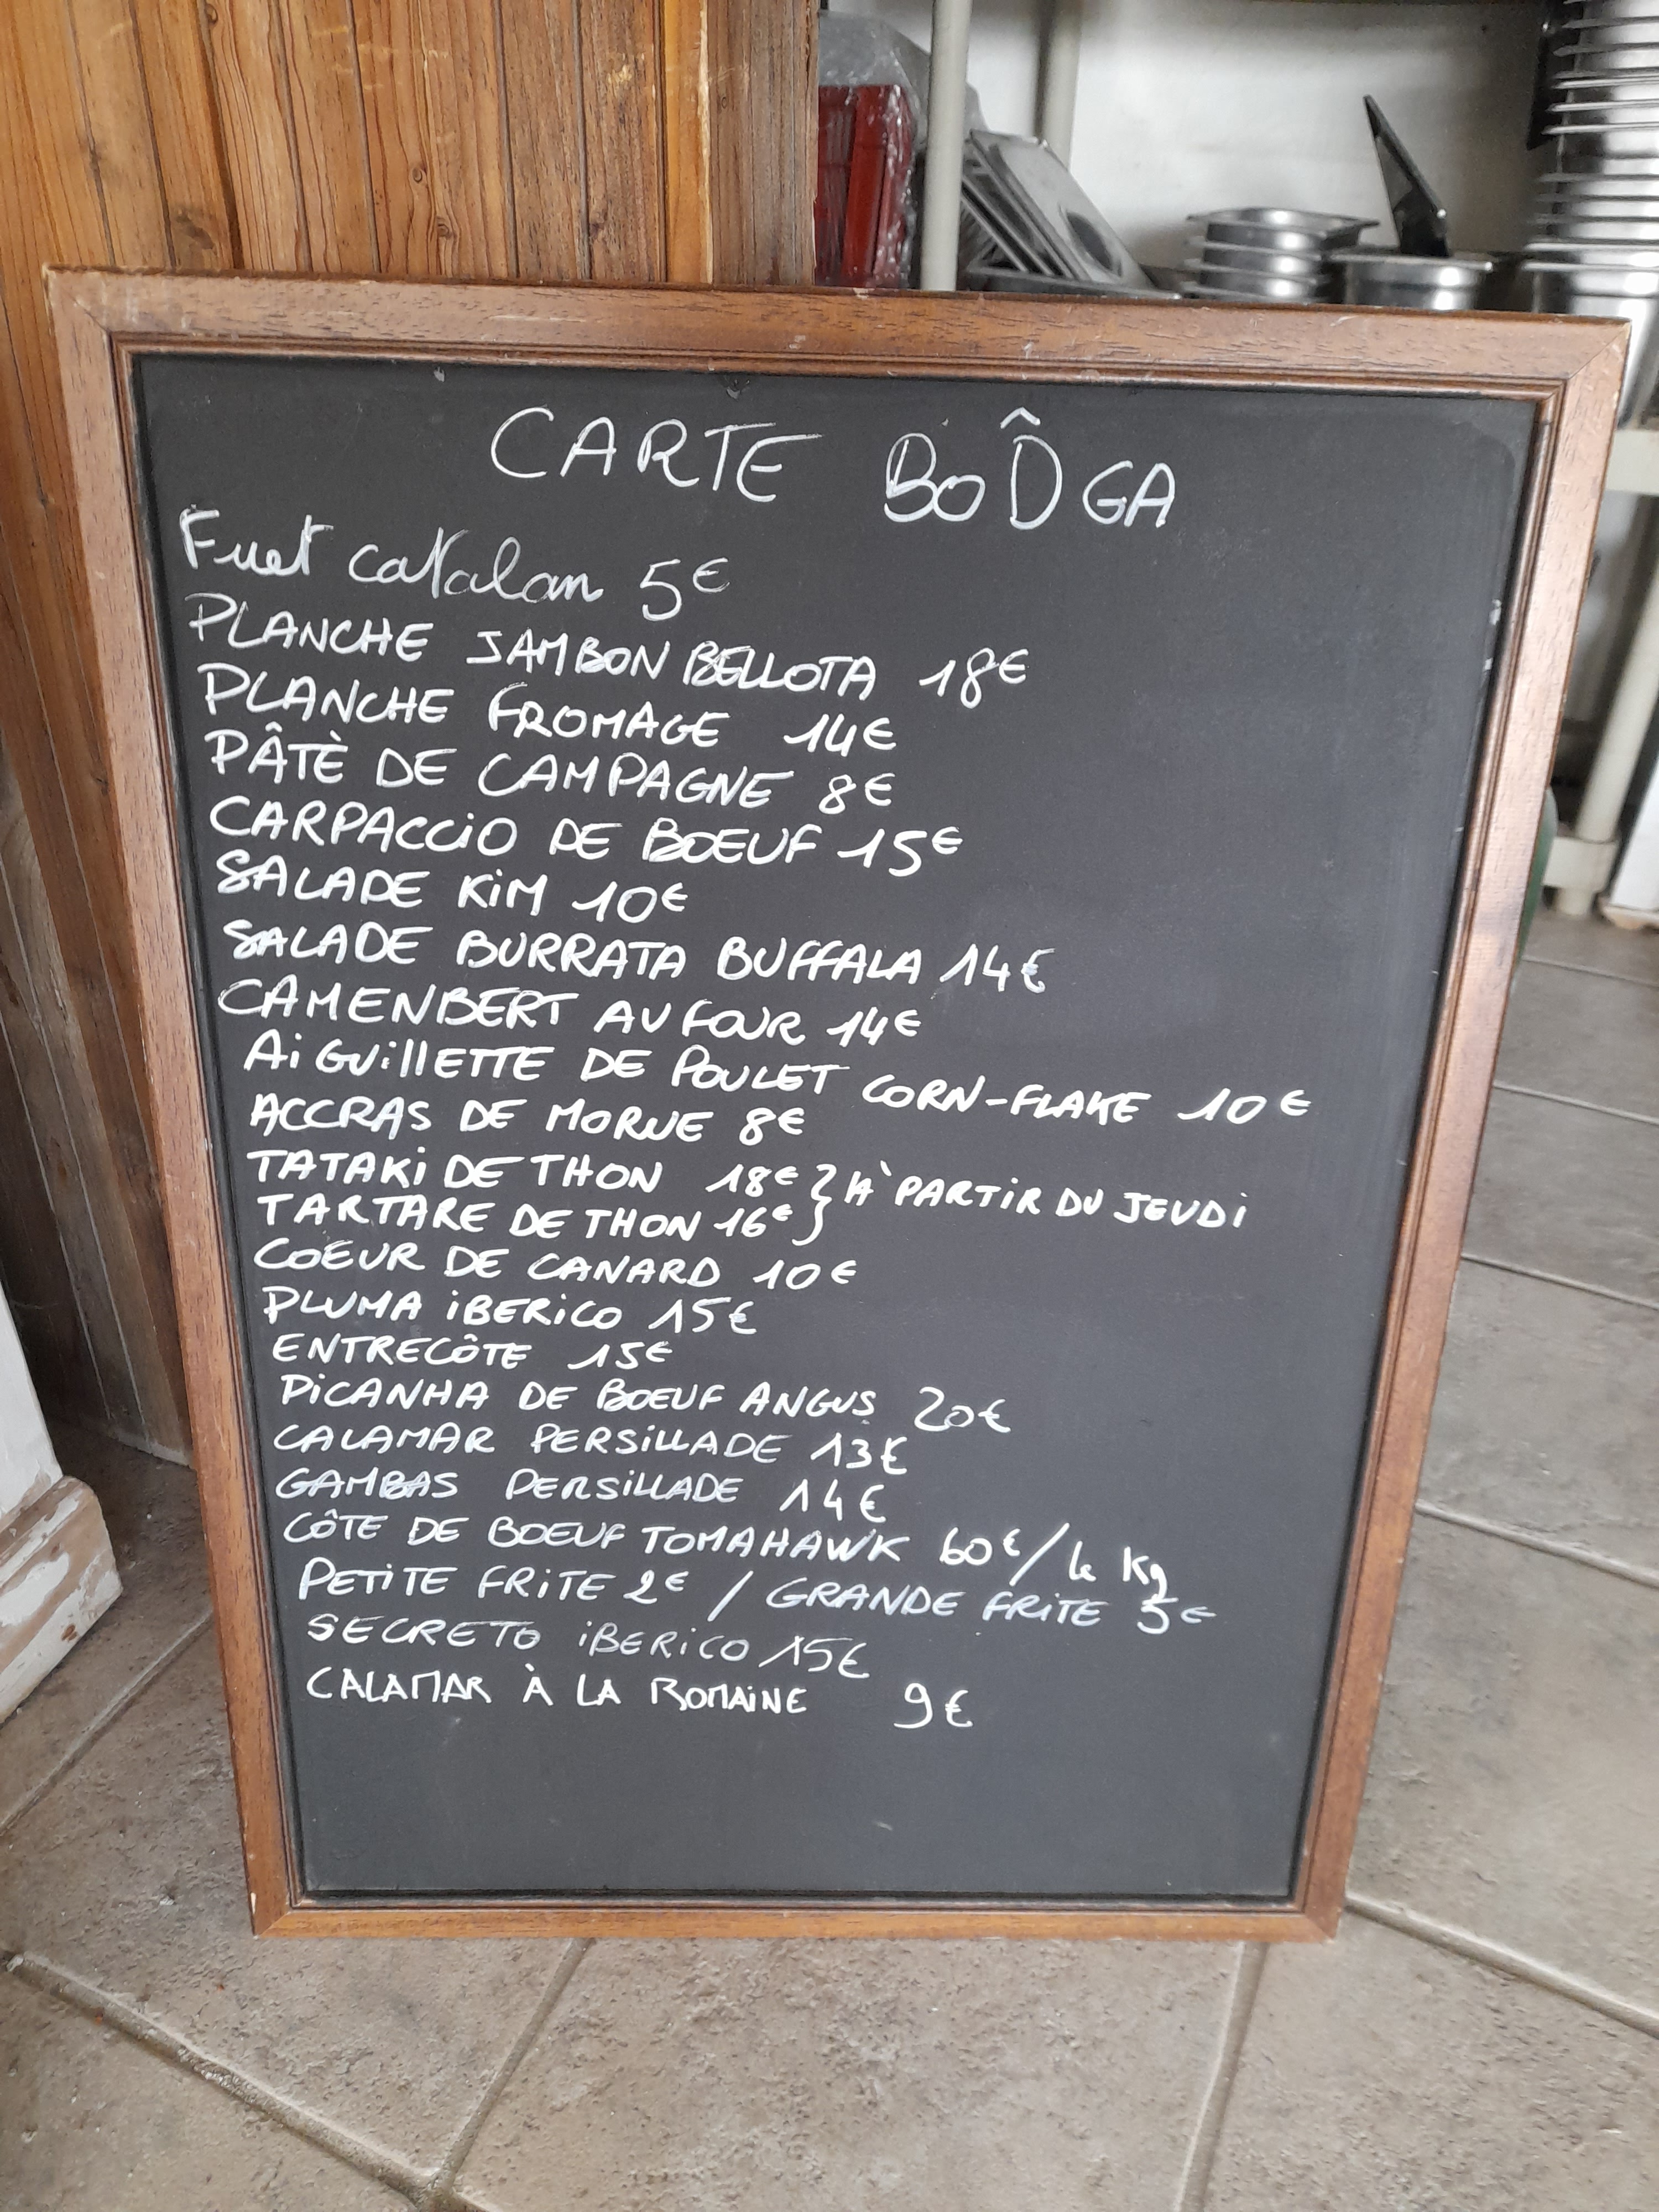 CARTE BoÔGA
Fuet catalan 5€
PLANCHE JAMBON BELLOTA 18€
PLANCHE FROMAGE 14€
PÂTÈ DE CAMPAGNE 8€
CARPACCiO DE BOEUF 15€
SALADE KiM 10€
SALADE BURRATA BUFFALA 14€
CAMENBERT AU FOUR 14€
AiGUillETTE DE POULET CORN-FLAKE 10€
ACCRAS DE MORUE 8€
TATAKi DE THON 18€ } À PARTiR DU JEUDi
TARTARE DE THON 16€
COEUR DE CANARD 10€
PLUMA iBERiCO 15€
ENTRECÔTE 15€
PiCANHA DE BOEUF ANGUS 20€
CALAMAR PERSiLLADE 13€
GAMBAS PERSiLLADE 14€
CÔTE DE BOEUF TOMAHAWK 60€/le Kg
PETiTE FRiTE 2€ / GRANDE FRiTE 5€
SECRETO iBERiCO 15€
CALAMAR À LA ROMAiNE 9€